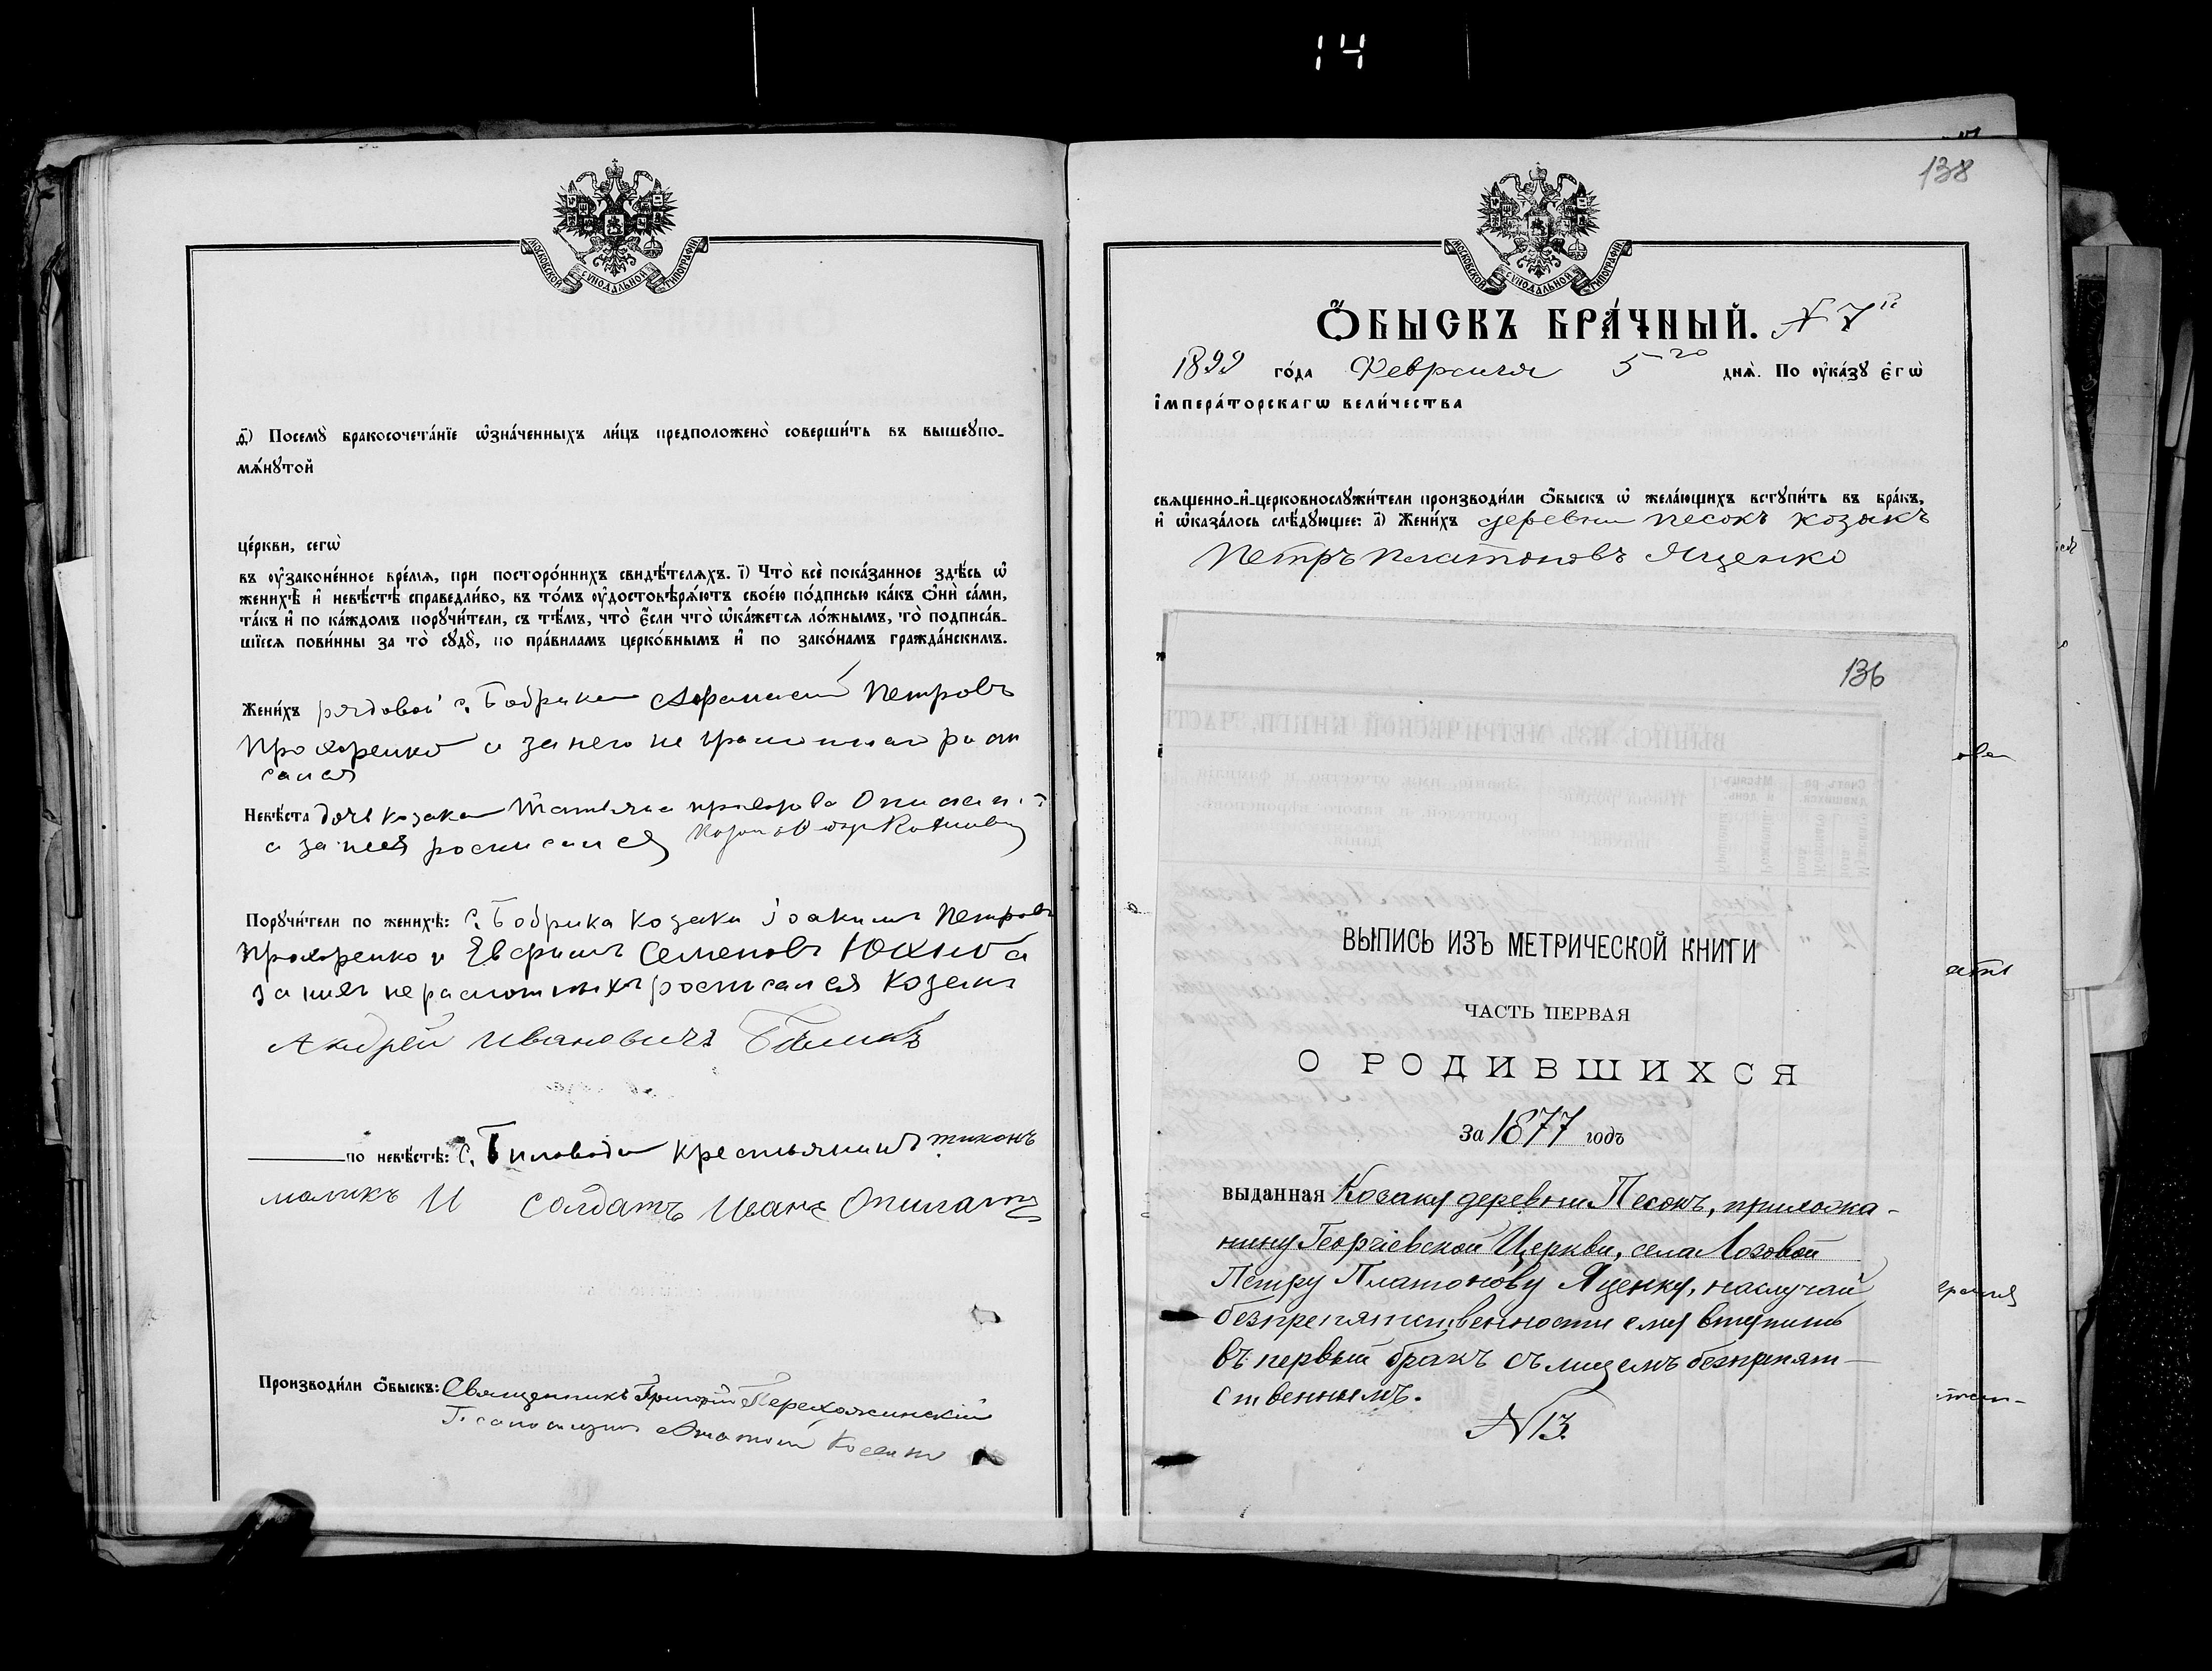 14
МОСКОВСКОЙ СѴНОДАЛЬНОЙ ТИПОГРАФІИ
д҃) Посемꙋ̀ бракосочета́нїе ѡ҆зна́ченныхъ ли́цъ предположено̀ соверши́ть въ вышеꙋпо-
мѧ́нꙋтой
це́ркви, сегѡ̀
въ ᲂу҆законе́нное вре́мѧ, при посторо́ннихъ свидѣ́телѧхъ. і҃) Что̀ всѐ пока́занное здѣ́сь ѡ҆
женихѣ̀ и҆ невѣ́стѣ справедли́во, въ то́мъ ᲂу҆достовѣрѧ́ютъ свое́ю по́дписью ка́къ ѻ҆нѝ са́ми,
та́къ и҆ по ка́ждомъ порꙋчи́тели, съ тѣ́мъ, что̀ є҆́сли что̀ ѡ҆ка́жетсѧ ло́жнымъ, то̀ подписа́в-
шїесѧ пови́нны за то̀ сꙋдꙋ̀, по пра́виламъ церко́внымъ и҆ по зако́намъ гражда́нскимъ.
Жени́хъ рядовой с. Бобрика Афанасий Петровъ
Прохоренко а за него не грамотнаго роспи
сался
Невѣ́ста дочь козака Татьяна
а за нея росписался
Порꙋчи́тели по женихѣ̀: С. Бобрика козаки Іоакимъ Петровъ
Прохоренко и Евфимъ Семеновъ Юхно а
за нихъ неграмотныхъ росписался козакъ
Андрей Ивановичъ
по невѣ́стѣ: С. крестьянинъ тихонъ
маликъ И солдатъ Иванъ Опилатъ
Производи́ли ѻ҆́быскъ: Священникъ Григорій
Псаломщикъ
138
МОСКОВСКОЙ СѴНОДАЛЬНОЙ ТИПОГРАФІИ
Ѻ҆́БЫСКЪ БРА́ЧНЫЙ. N 7й
1899 го́да Февраля 5го днѧ̀. По ᲂу҆ка́зꙋ є҆гѡ̀
і҆мпера́торскагѡ вели́чества
свѧщенно-и҆-церковнослꙋжи́тели производи́ли ѻ҆́быскъ ѡ҆ жела́ющихъ встꙋпи́ть въ бра́къ,
и҆ ѡ҆каза́лось слѣ́дꙋющее: а҃) Жени́хъ деревни Песокъ козакъ
Петръ Платоновъ Яценко
136
ВЫПИСЬ ИЗЪ МЕТРИЧЕСКОЙ КНИГИ
ЧАСТЬ ПЕРВАЯ
О РОДИВШИХСЯ
за 1877 годъ
выданная Козаку деревни Песокъ, прихожа-
нину Георгіевской Церкви, села Лозовой
Петру Платонову Яценку, на случай
безпрепятственности ему вступить
въ первый бракъ съ лицемъ безпрепят-
ственнымъ.
N 13.